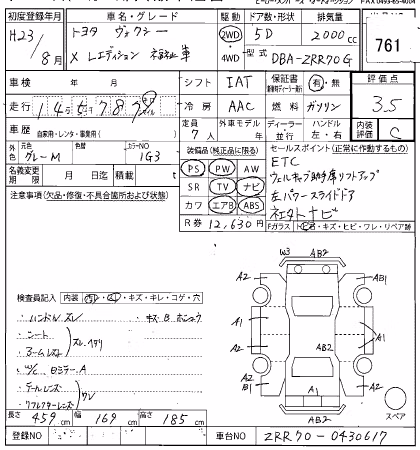 初度登録年月 車名・グレード 駆動 ドア数・形状 排気量
H23/8月 トヨタ ヴォクシー 2WD 5D 2000cc 761
X Lエディション 福祉車 4WD 型式 DBA-ZRR70G
車検 年 月 シフト IAT 保証書 有・無 評価点
走行 145787 冷房 AAC 燃料 ガソリン 3.5
車歴 自家用・レンタ・事業用( ) 定員 7人 外車モデル 年 ディーラー 並行 ハンドル 左・右 内装 C
外色 元色 グレーM 色替 カラーNO 1G3 装備品(純正品に限る) セールスポイント(正常に作動するもの)
名義変更期限 月 日 積載 t PS PW AW ETC
注意事項(欠品・修復・不具合箇所および状態) SR TV ナビ ウェルキャブ助手席リフトアップ
カワ エアB ABS 左パワースライドドア
R券 12,630円 社外ナビ
Fガラス キズ・ヒビ・ワレ・リペア跡
W3 AB2
A2 A2 AB1
A1 A1
AB2
A2 A2 AB1
A1
AB2
スペア
検査員記入 内装 キズ・キレ・コゲ・穴
・ハンドルスレ ・キズB
・シート
・アームレスト スレ
・テールレンズ
・リフレクターレンズ ワレ
長さ 459cm 幅 169cm 高さ 185cm
登録NO 車台NO ZRR70-0430617